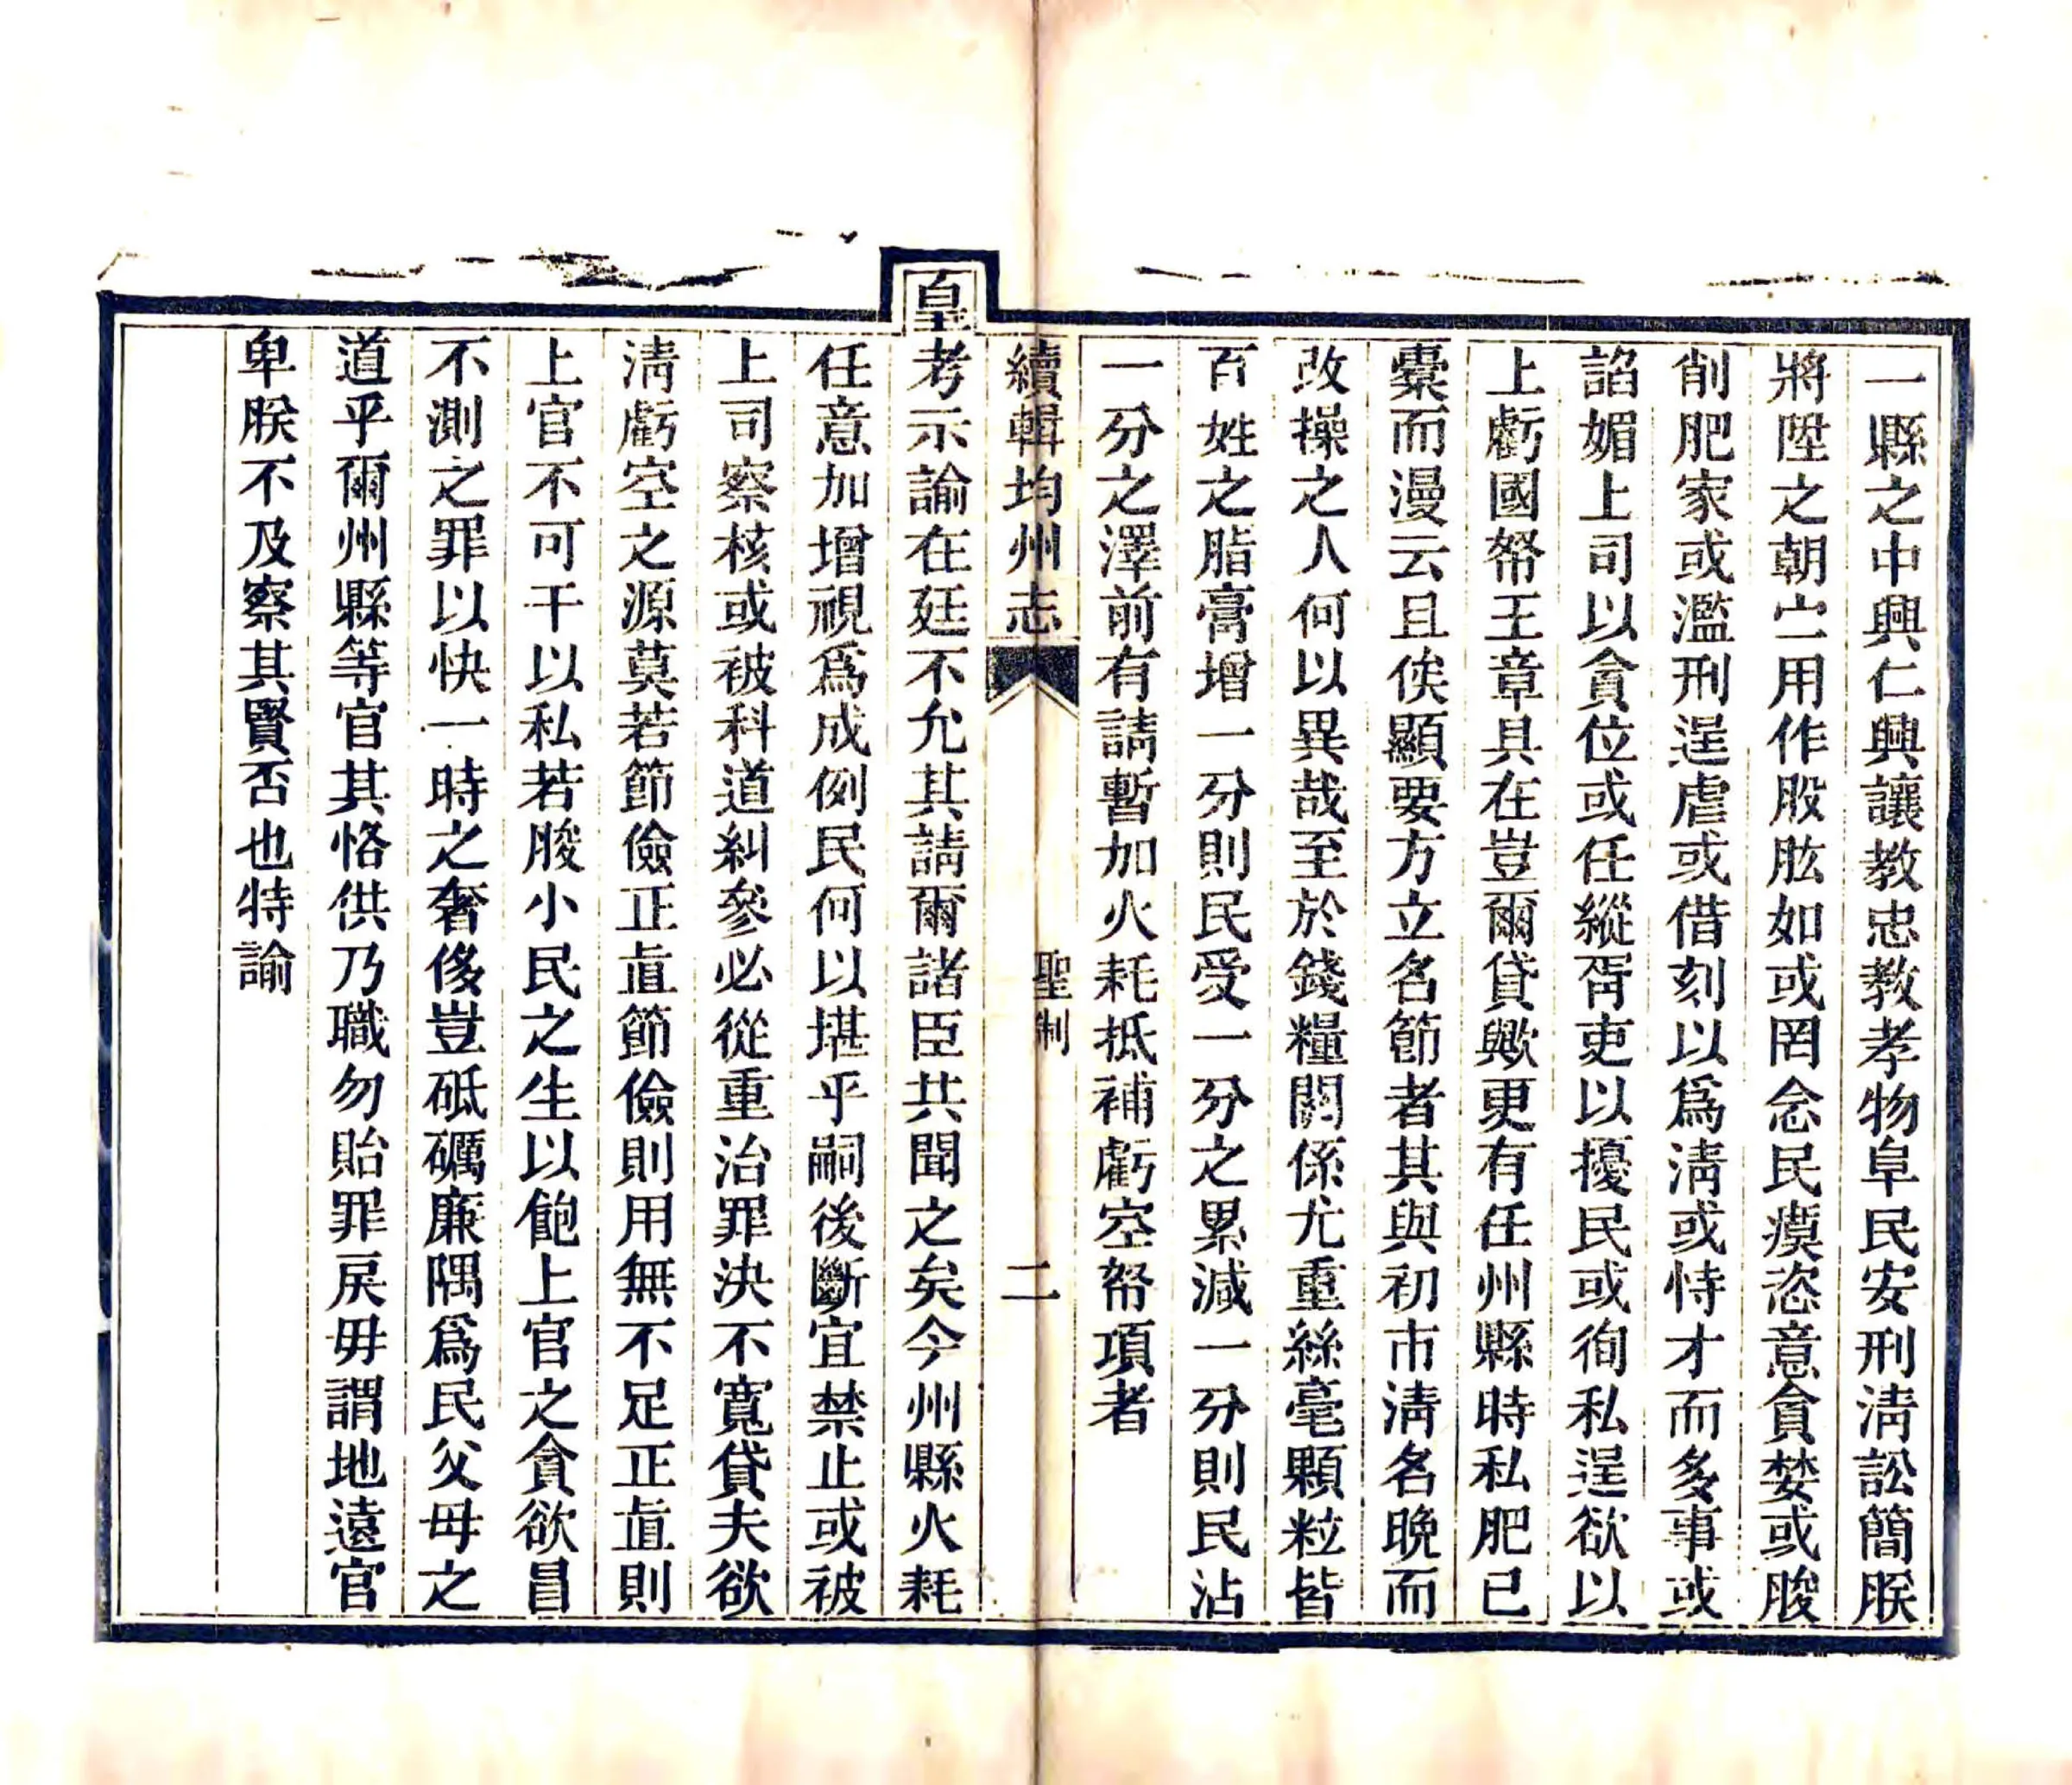 一縣之中興仁興讓教忠教孝物阜民安刑淸訟簡朕
將陞之朝宁用作股肱如或罔念民瘼恣意貪婪或朘
削肥家或濫刑逞虐或借刻以爲淸或恃才而多事或
諂媚上司以貪位或任縱胥吏以擾民或徇私逞欲以
上虧國帑王章具在豈爾貸歟更有任州縣時私肥己
橐而漫云且俟顯要方立名節者其與初市淸名晚而
改操之人何以異哉至於錢糧關係尤重絲毫顆粒皆
百姓之脂膏增一分則民受一分之累減一分則民沾
一分之澤前有請暫加火耗抵補虧空帑項者
續輯均州志
聖制
二
皇考示諭在廷不允其請爾諸臣共聞之矣今州縣火耗
任意加增視爲成例民何以堪乎嗣後斷宜禁止或被
上司察核或被科道糾參必從重治罪決不寬貸夫欲
淸虧空之源莫若節儉正直節儉則用無不足正直則
上官不可干以私若朘小民之生以飽上官之貪欲冒
不測之罪以快一時之奢侈豈砥礪廉隅爲民父母之
道乎爾州縣等官其恪供乃職勿貽罪戾毋謂地遠官
卑朕不及察其賢否也特諭